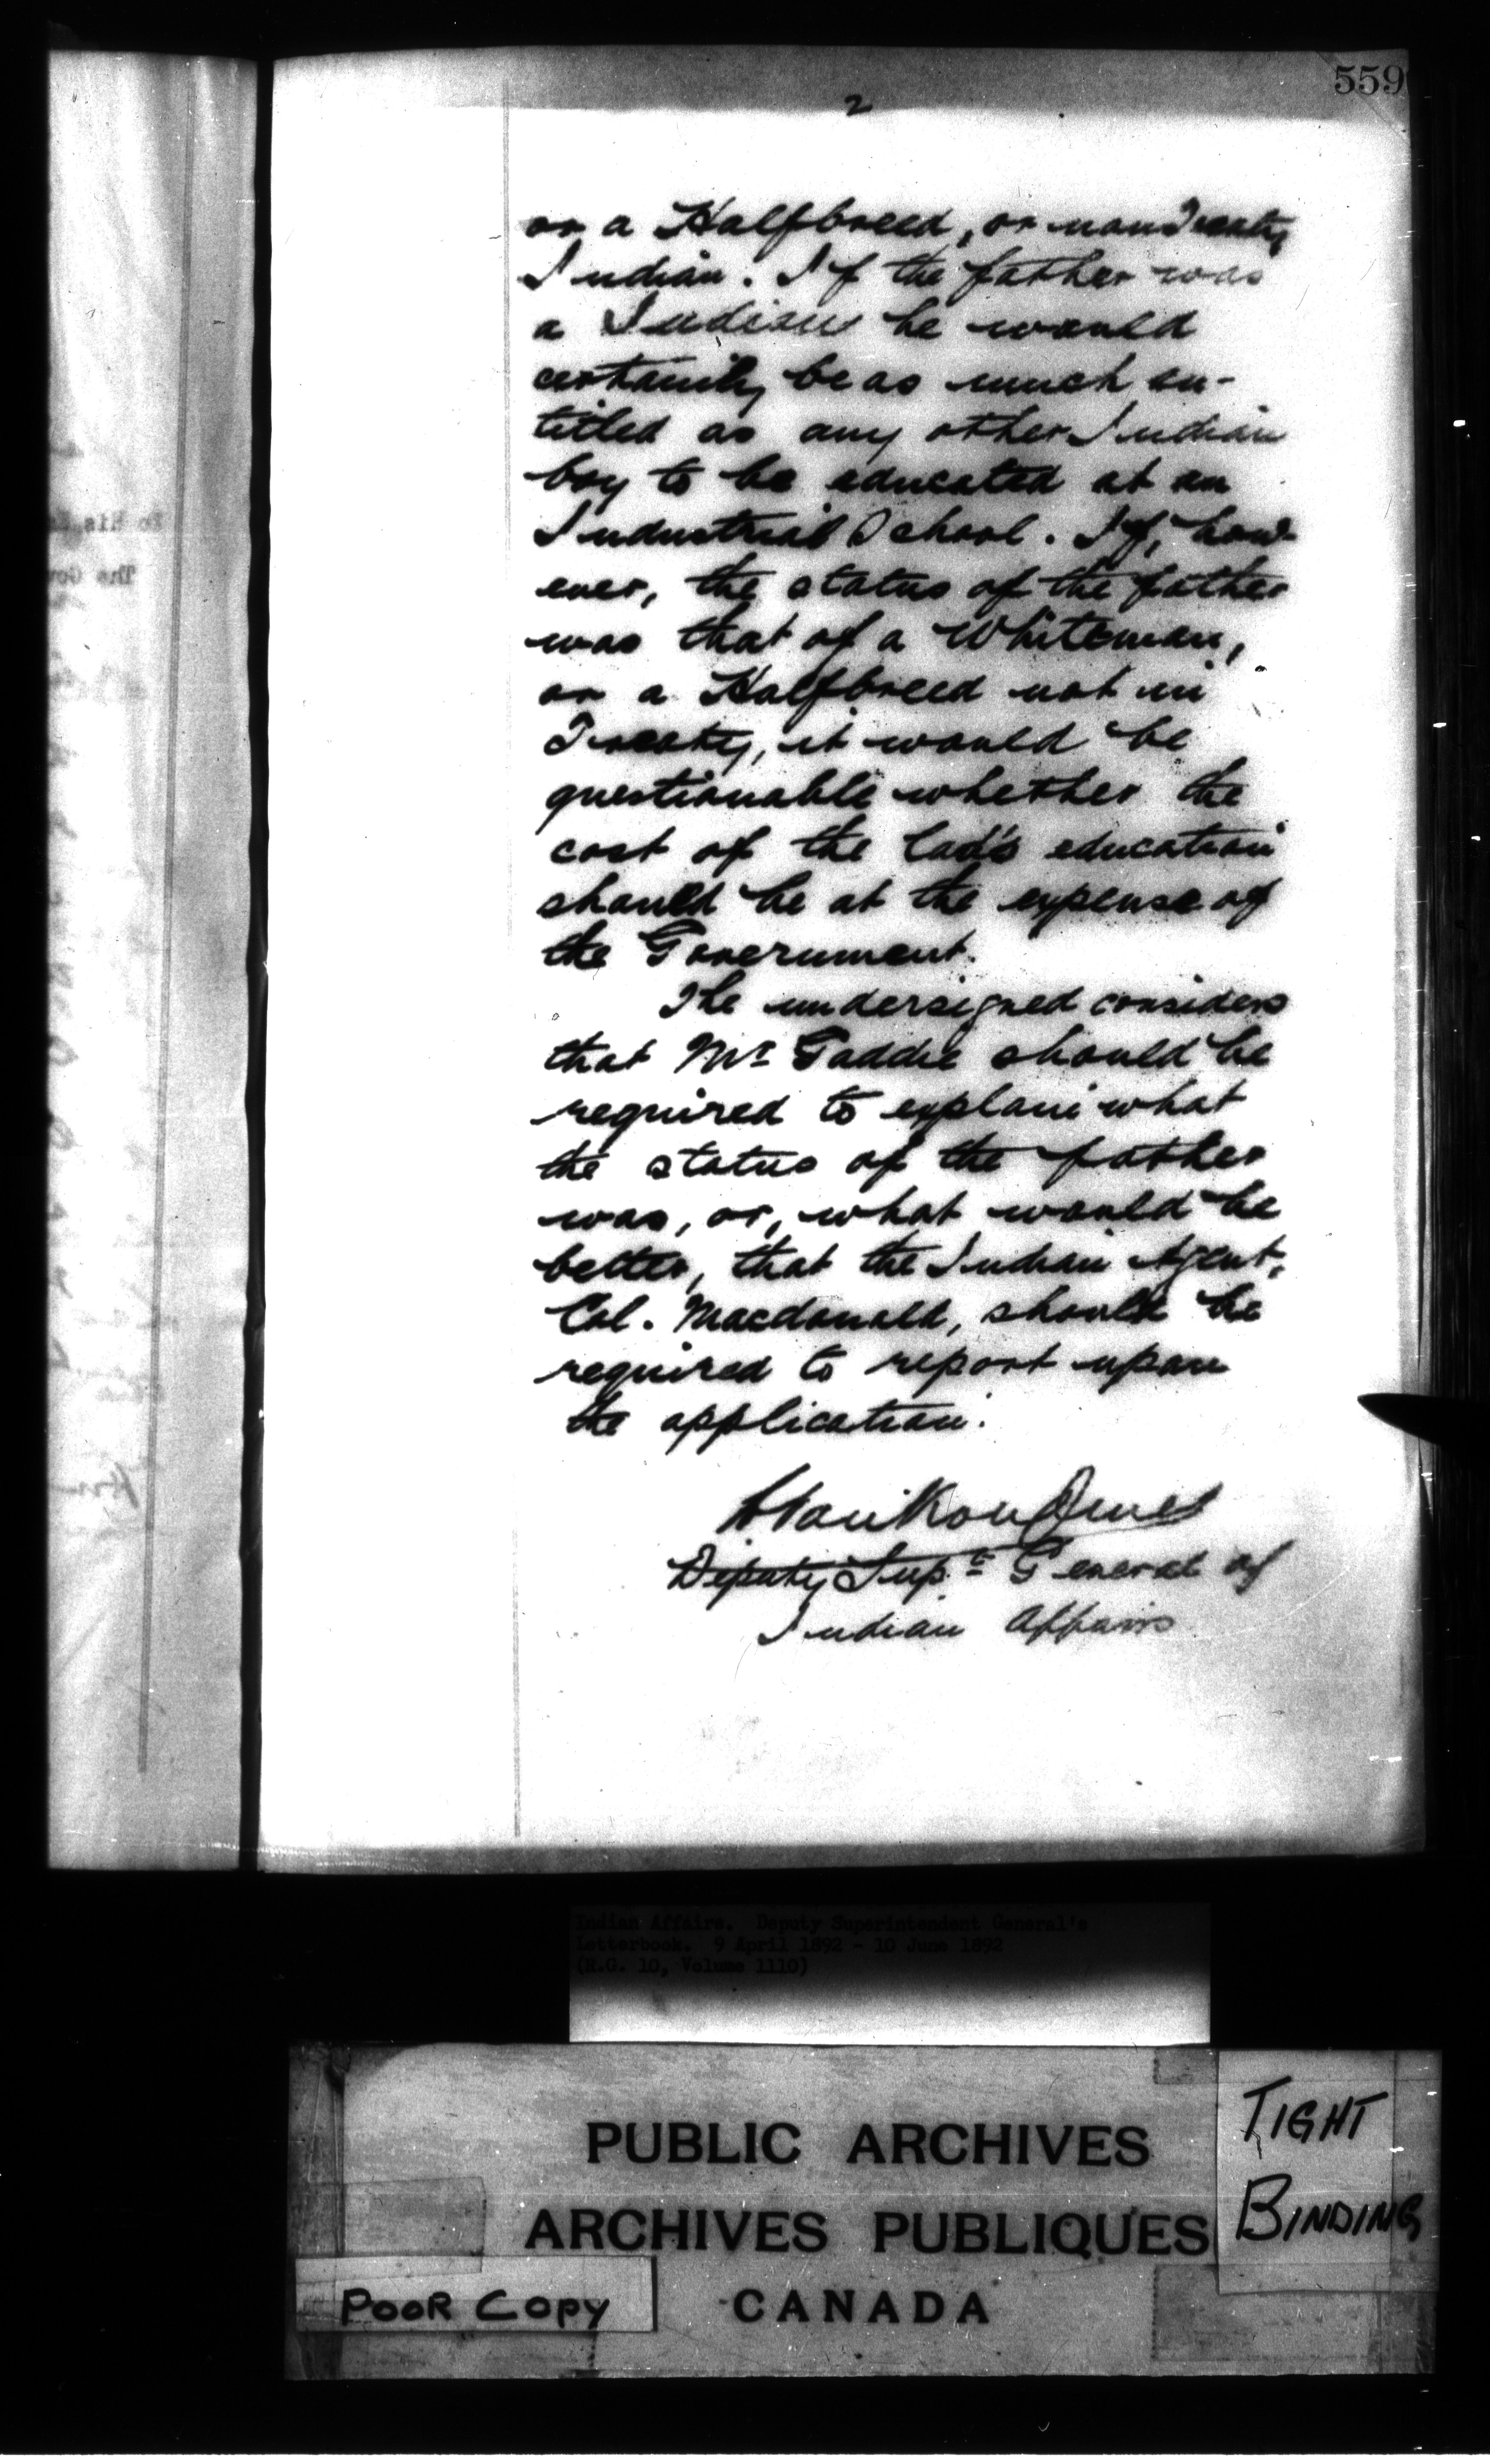 559
2
or a Halfbreed, or non Treaty
Indian. If the father was
a Indian he would
certainly be as much en-
titled as any other Indian
boy to be educated at an
Industrial School. If, how-
ever, the status of the father
was that of a Whiteman,
or a Halfbreed not in
Treaty, it would be
questionable whether the
cost of the lad's education
should be at the expense of
the Government.
The undersigned considers
that Mr Gaddie should be
required to explain what
the status of the father
was, or, what would be
better, that the Indian Agent,
Col. Macdonald, should be
required to report upon
the application.
Deputy Supt General of
Indian Affairs
Indian Affairs. Deputy Superintendent General's
Letterbook. 9 April 1892 - 10 June 1892
(R.G. 10, Volume 1110)
PUBLIC ARCHIVES
ARCHIVES PUBLIQUES
CANADA
TIGHT
BINDING
POOR COPY